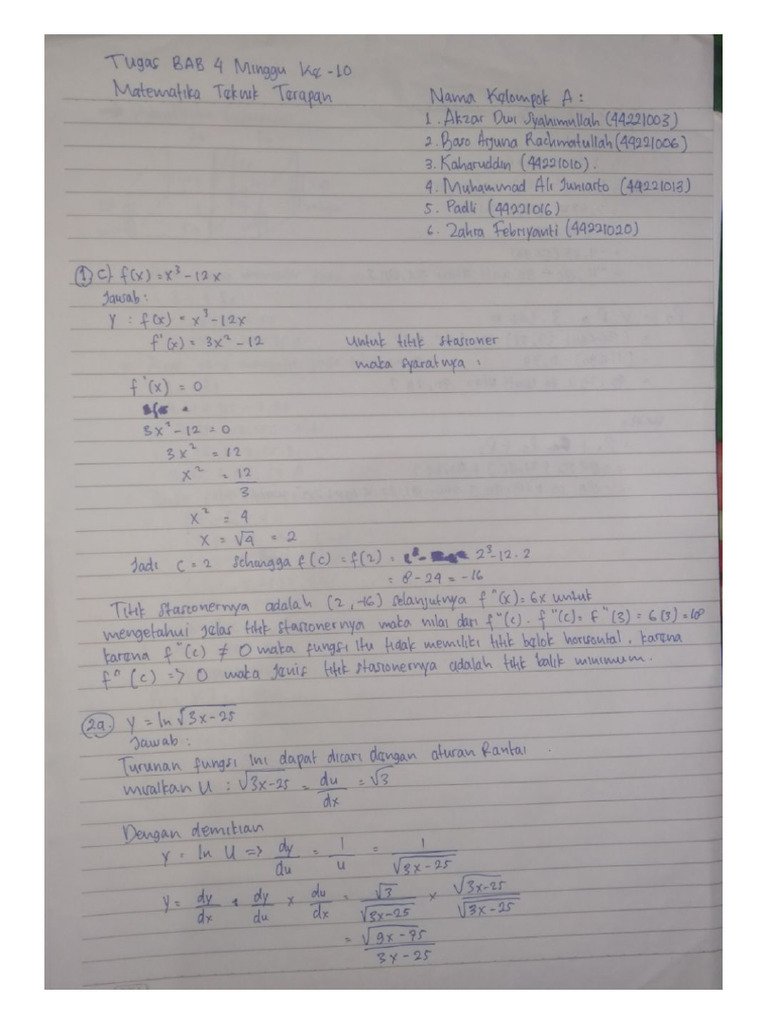 Tugas BAB 4 Minggu Ke-10
Matematika Teknik Terapan
Nama Kelompok A :
1. Akzar Dwi Syahimullah (44221003)
2. Baso Arjuna Rachmatullah (44221006)
3. Kaharuddin (44221010).
4. Muhammad Ali Juniarto (44221013)
5. Padli (44221016)
6. Zahra Febriyanti (44221020)
1 c) f(x) = x³ - 12x
Jawab :
Y : f(x) = x³ - 12x
f'(x) = 3x² - 12 Untuk titik stasioner
maka syaratnya :
f'(x) = 0
3x² - 12 = 0
3x² = 12
x² = 12/3
x² = 4
x = √4 = 2
Jadi c = 2 sehingga f(c) = f(2) = 2³ - 12 . 2
= 8 - 24 = -16
Titik stasionernya adalah (2, -16) selanjutnya f"(x) = 6x untuk
mengetahui jelas titik stasionernya maka nilai dari f"(c). f"(c) = f"(3) = 6(3) = 18
karena f"(c) ≠ 0 maka fungsi itu tidak memiliki titik belok horisontal, karena
f"(c) => 0 maka jenis titik stasionernya adalah titik balik minimum.
2a. y = ln √3x-25
Jawab :
Turunan fungsi ini dapat dicari dengan aturan Rantai.
misalkan U : √3x-25 = du/dx = √3
Dengan demikian
Y = ln U => dy/du = 1/u = 1/√3x-25
Y = dy/dx = dy/du × du/dx = √3/√3x-25 × √3x-25/√3x-25
= √9x-75/3x-25